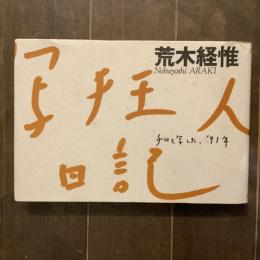 荒木経惟
Nobuyoshi ARAKI
写狂人
日記
チロと写した、'91年